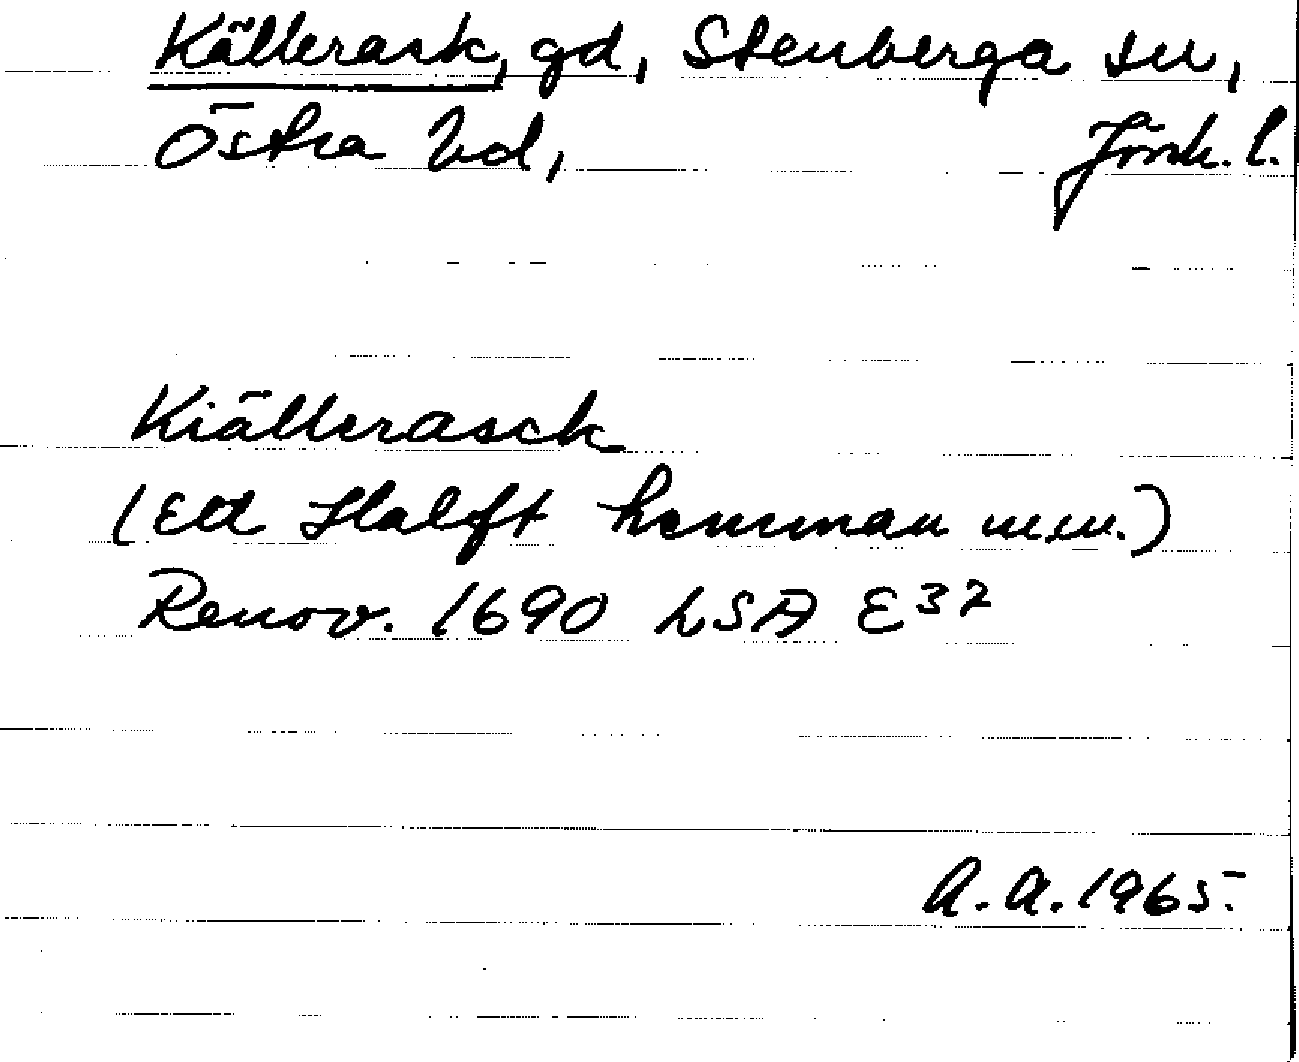 Källerask, gd, Stenberga sn,
Östra hd, Jönk. l.
Kiällerasck
(Ett Halft hemman m.m.)
Renov. 1690 LSA E 37
A.A. 1965.